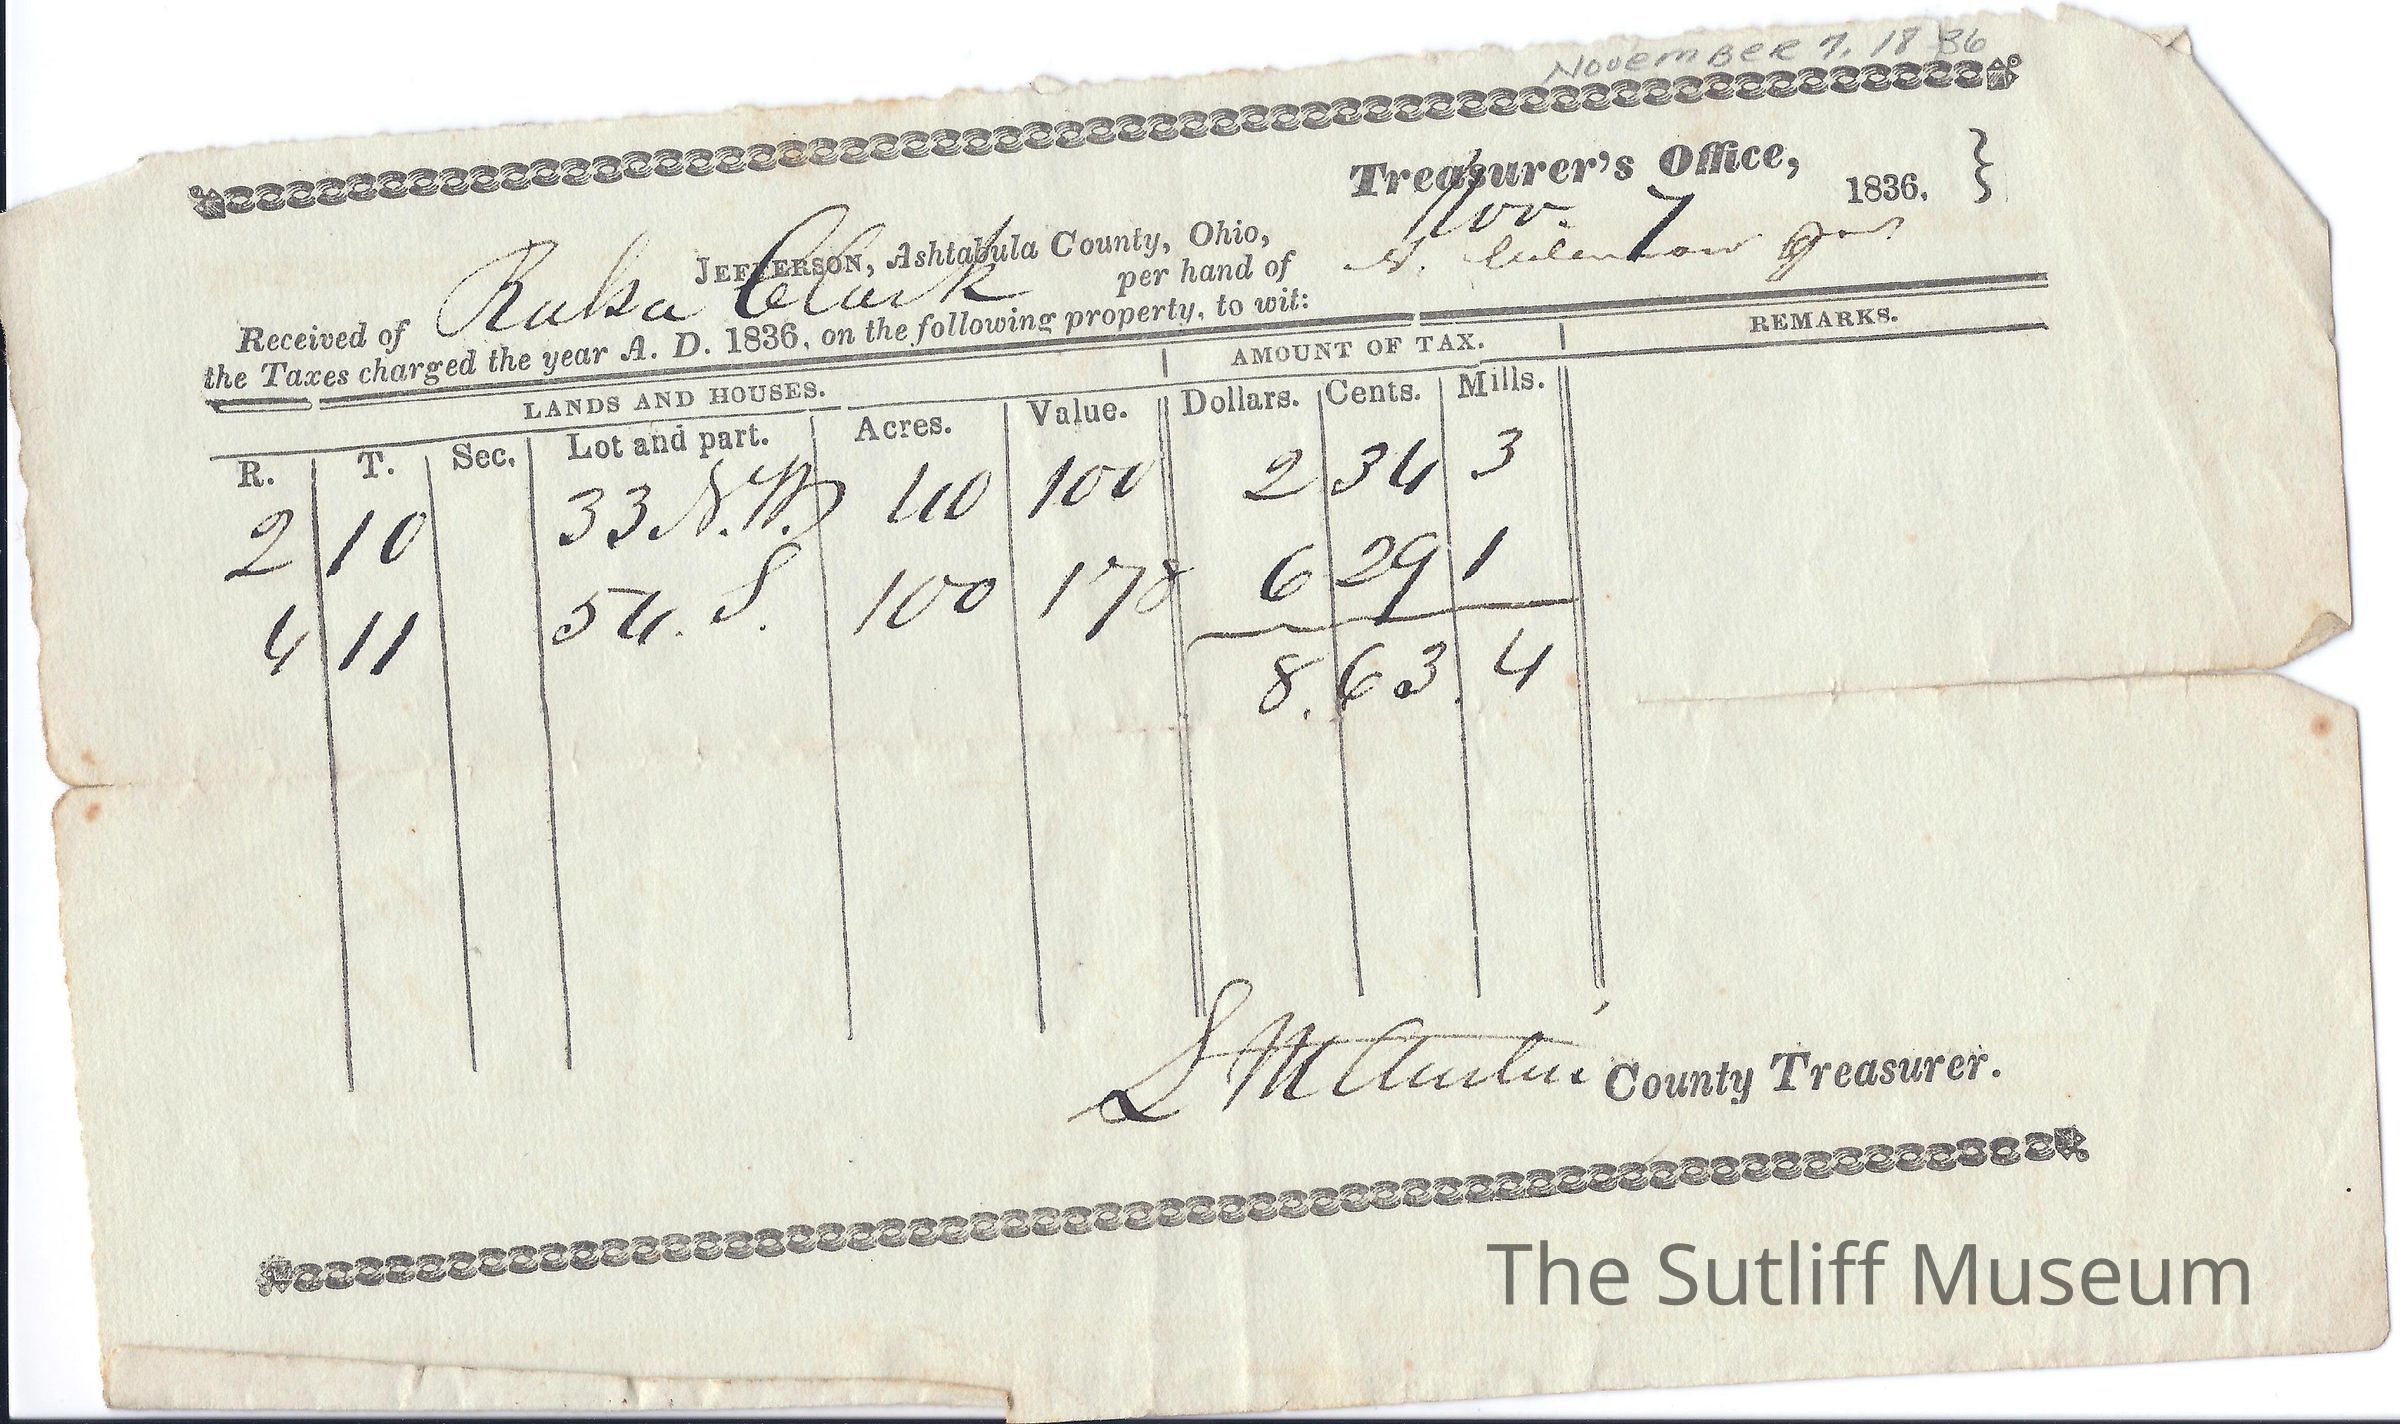 November 7, 1836
Treasurer's Office,
JEFFERSON, Ashtabula County, Ohio, Nov. 7 1836.
Received of Clark per hand of
the Taxes charged the year A. D. 1836, on the following property, to wit:
LANDS AND HOUSES. AMOUNT OF TAX. REMARKS.
R. T. Sec. Lot and part. Acres. Value. Dollars. Cents. Mills.
2 10 33 N.W. 40 100 2 34 3
4 11 54. S. 100 178 6 29 1
8. 63. 4
L M Austin County Treasurer.
The Sutliff Museum